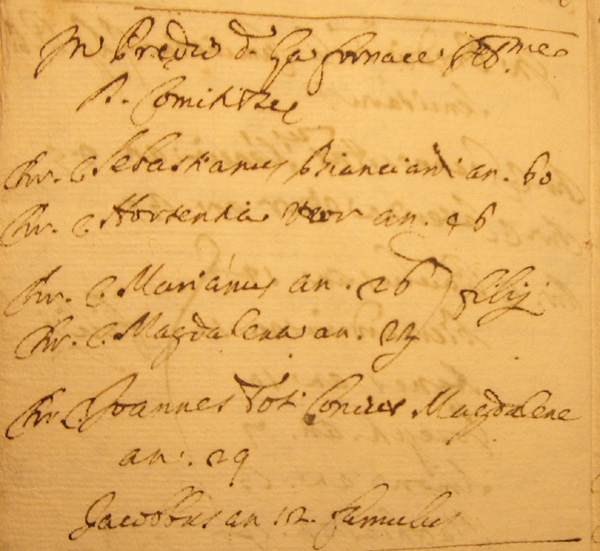 In Predio d. La fornace
D. Comitisse
Chr. C. Sebastianus Bianciardi an. 60
Chr. C. Hortentia uxor an. 46
Chr. C. Marianus an. 26 } filij
Chr. C. Magdalena an. 22
Chr. C. Joannes Toti Coniux Magdalene
an. 29
Jacobus an 12. famulus